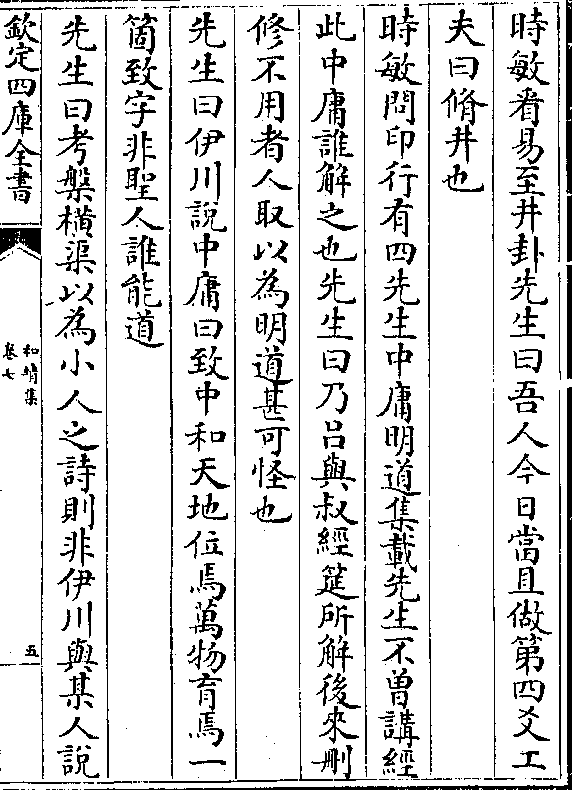 時敏看易至井卦先生曰吾人今日當且做第四爻工
夫曰脩井也
時敏問印行有四先生中庸明道集載先生不曾講經
此中庸誰解之也先生曰乃吕與叔經筵所解後來刪
修不用者人取以為明道甚可怪也
先生曰伊川說中庸曰致中和天地位焉萬物育焉一
箇致字非聖人誰能道
先生曰考槃橫渠以為小人之詩則非伊川與某人說
欽定四庫全書
和靖集
卷七
五